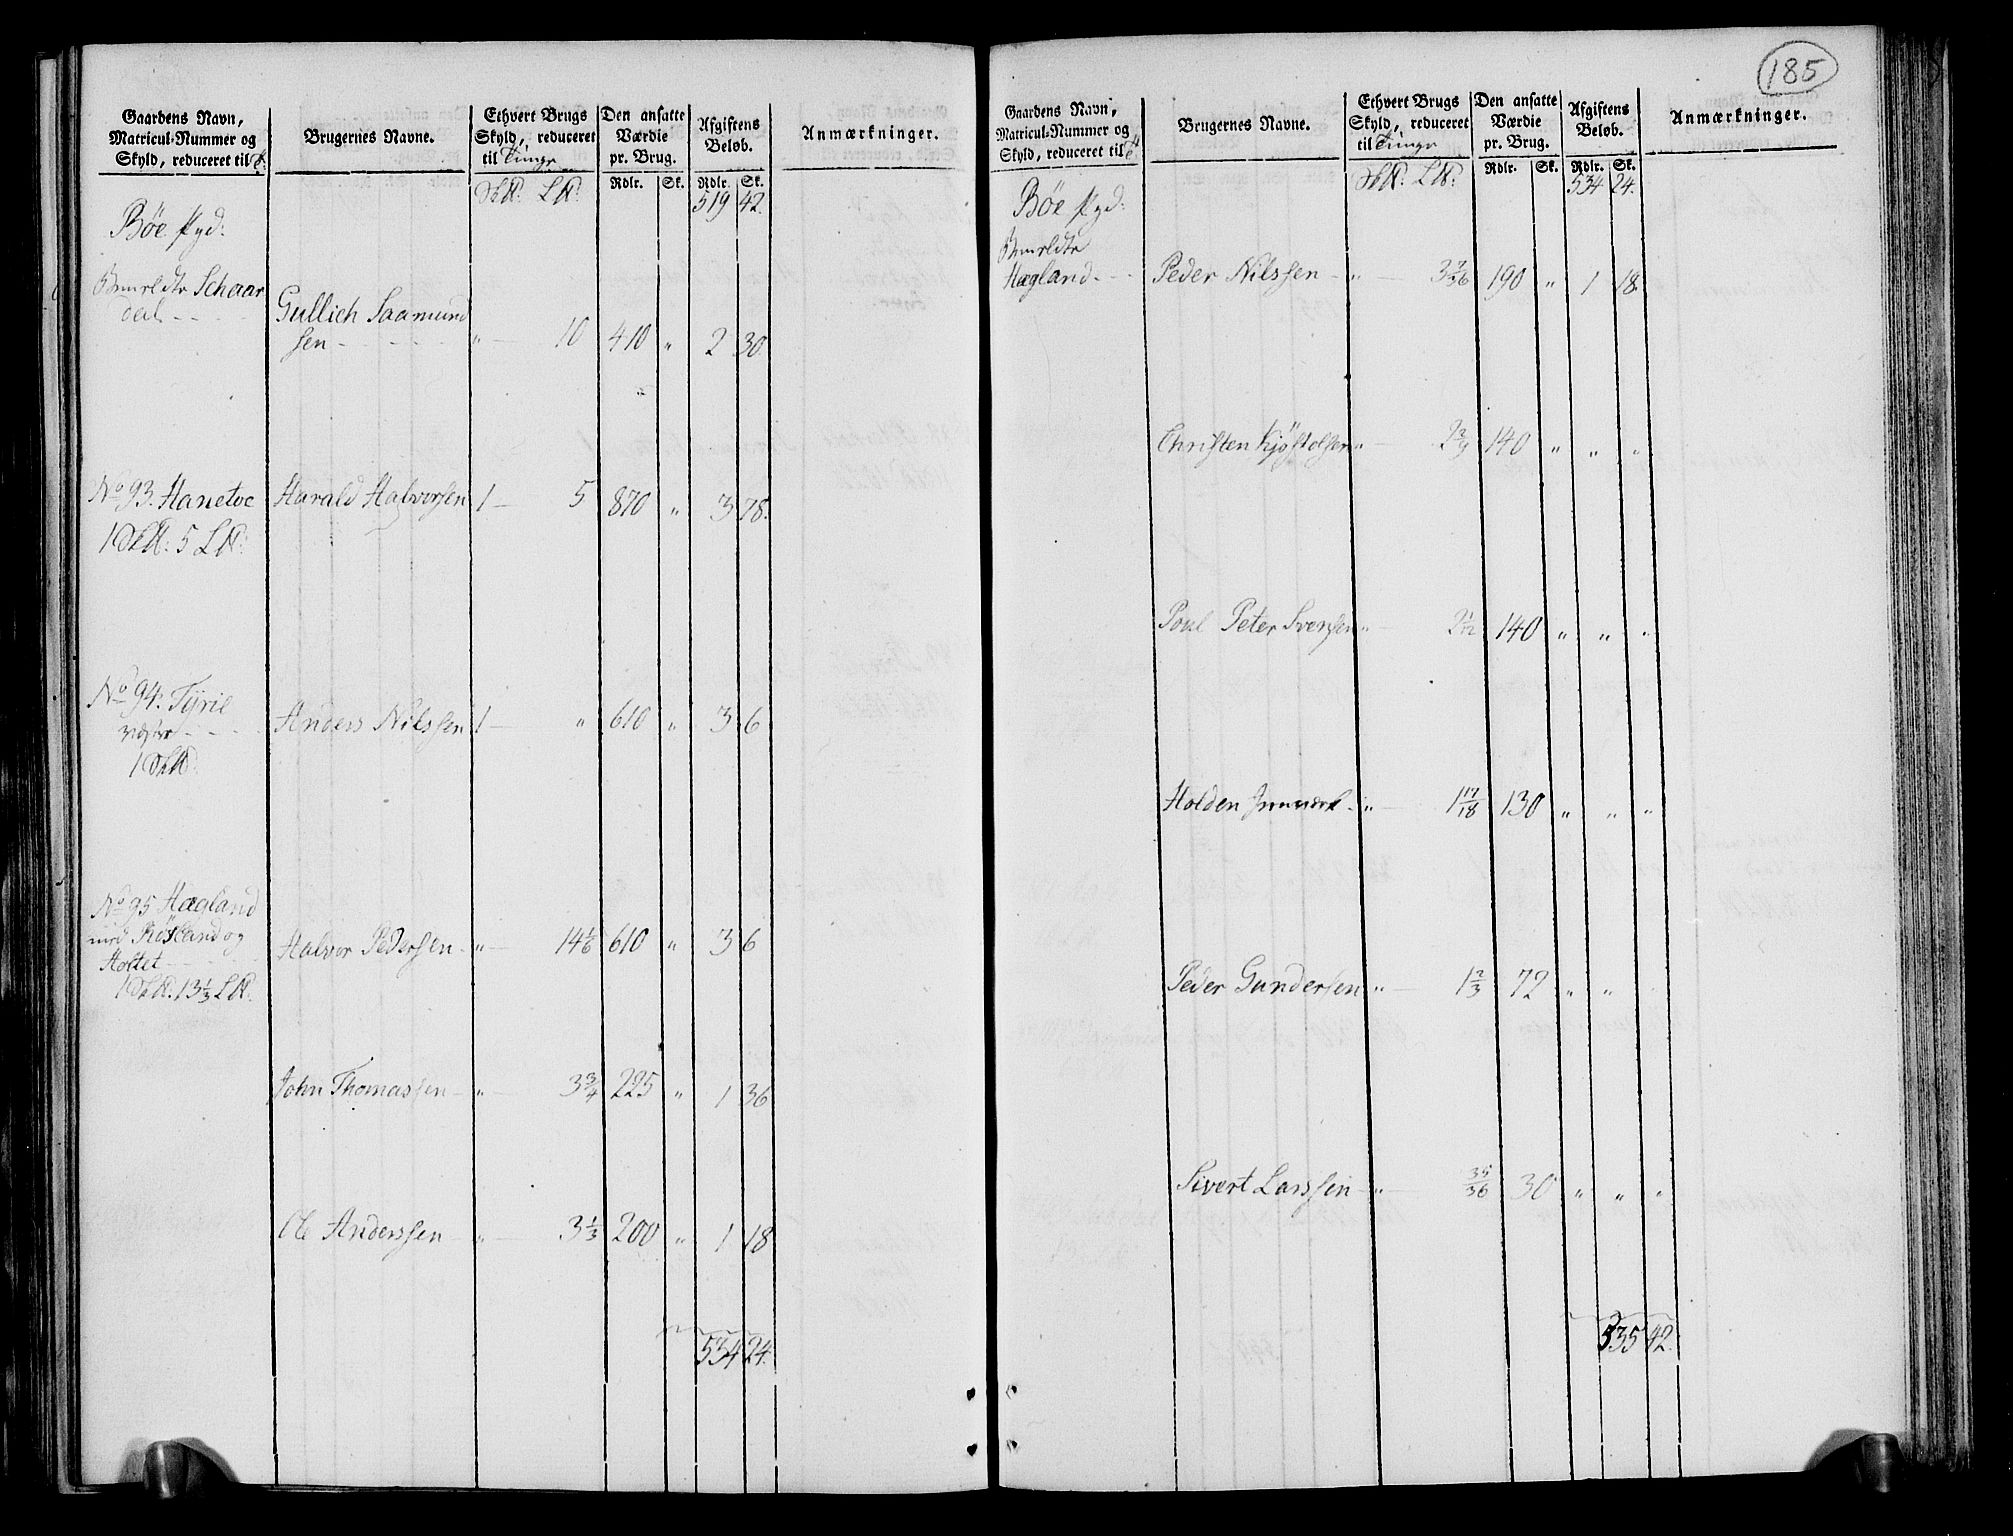 185
Gaardens Navn, Matricul-Nummer og Skyld, reduceret til
Brugernes Navne.
Ethvert Brugs Skyld, reduceret til Tunge
Den ansatte Værdie pr. Brug.
Afgiftens Beløb.
Anmærkninger.
Rdlr. Sk. Rdlr. Sk.
519 42.
Bøe
Schaar
dal
Gullich Saamund
sen " 10 410 " 2 30
No 93. Hanetoe Harald Halvorsen 1 5 870 " 3 78.
1 5
No 94. Tyrie
Anders Nilssen 1 " 610 " 3 6
1
No 95 Hægland
med Røsland og Halvor Pedersen " 14 1/6 610 " 3 6
Holtet
1 13 1/3
John Thomassen " 3 3/4 225 " 1 36
Ole Anderssen " 3 1/3 200 " 1 18
534 24.
Gaardens Navn, Matricul-Nummer og Skyld, reduceret til
Brugernes Navne.
Ethvert Brugs Skyld, reduceret til Tunge
Den ansatte Værdie pr. Brug.
Afgiftens Beløb.
Anmærkninger.
Rdlr. Sk. Rdlr. Sk.
534 24.
Bøe
Hægland Peder Nilssen " 3 7/36 190 " 1 18
Christen Kjøstolsen " 2 2/9 140 " " "
Poul Peter Svensen " 2 1/12 140 " " "
Holden " 1 17/18 130 " " "
Peder Gundersen " 1 2/3 72 " "
Sivert Larssen " 35/36 30 " " "
535 42.